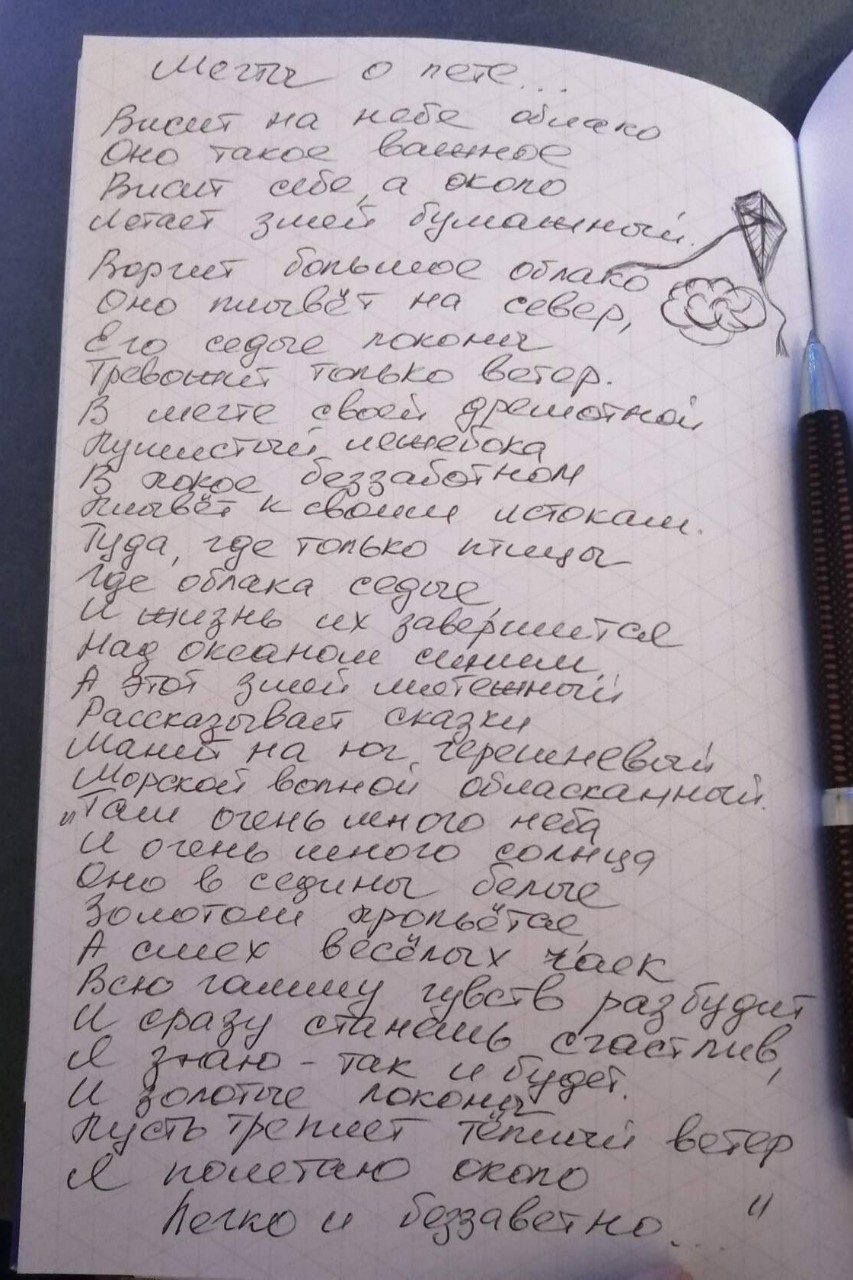 Мечты о лете...
Висит на небе облако
Оно такое важное
Висит себе, а около
Летает змей бумажный.
Ворчит большое облако
Оно плывёт на север,
Его седые локоны
Тревожит только ветер.
В мечте своей дремотной
Пушистый лежебока
В покое беззаботном
Плывёт к своим истокам.
Туда, где только птицы
Где облака седые
И жизнь их завершится
Над океаном синим.
А этот змей мятежный
Рассказывает сказки
Манит на юг черешневый
Морской волной обласканный.
"Там очень много неба
И очень много солнца
Оно в седины белые
Золотом прольётся
А смех весёлых чаек
Всю гамму чувств разбудит
И сразу станешь счастлив,
Я знаю - так и будет.
И золотые локоны
Пусть треплет тёплый ветер
Я полетаю около
Легко и беззаветно..."